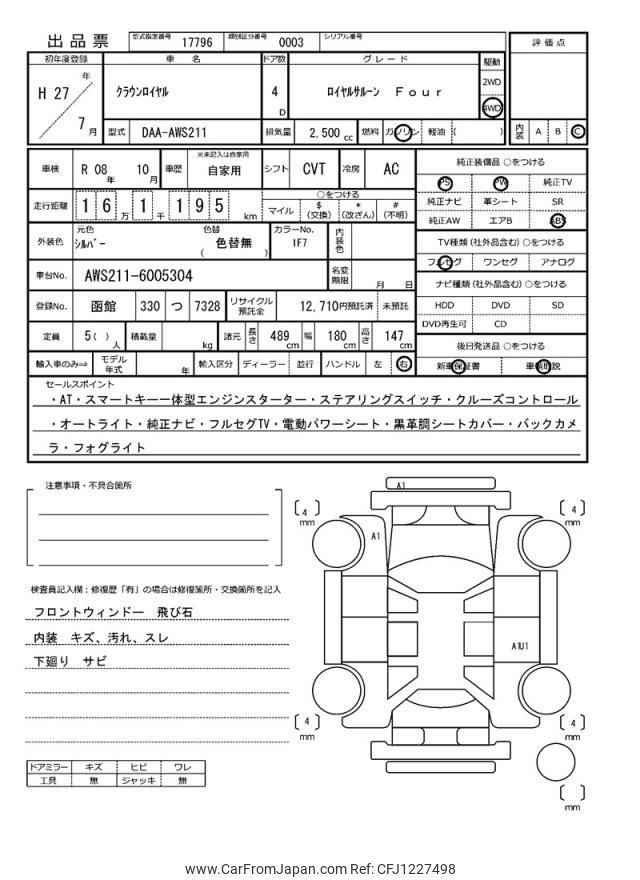 出品票
型式指定番号 17796 類別区分番号 0003 シリアル番号
評価点
初年度登録 車名 ドア数 グレード 駆動
H 27 年 7 月
クラウンロイヤル 4 D ロイヤルサルーン Four
2WD
4WD
型式 DAA-AWS211 排気量 2,500 cc 燃料 ガソリン 軽油 ( )
内装 A B C
車検 R 08 年 10 月 車歴 ※未記入は自家用 自家用 シフト CVT 冷房 AC
純正装備品 ○をつける
PS PW 純正TV
走行距離 1 6 万 1 千 1 9 5 km
○をつける
マイル $ (交換) * (改ざん) # (不明)
純正ナビ 革シート SR
純正AW エアB ABS
外装色 元色 シルバー 色替 ( 色替無 ) カラーNo. 1F7 内装色
TV種類 (社外品含む) ○をつける
フルセグ ワンセグ アナログ
車台No. AWS211-6005304 名変期限 月 日
ナビ種類 (社外品含む) ○をつける
登録No. 函館 330 つ 7328 リサイクル預託金 12,710円預託済 未預託
HDD DVD SD
DVD再生可 CD
定員 5( ) 人 積載量 kg 諸元 長さ 489 cm 幅 180 cm 高さ 147 cm
後日発送品 ○をつける
輸入車のみ⇒ モデル年式 年 輸入区分 ディーラー 並行 ハンドル 左 右
新車保証書 車載取説
セールスポイント
・AT・スマートキー一体型エンジンスターター・ステアリングスイッチ・クルーズコントロール
・オートライト・純正ナビ・フルセグTV・電動パワーシート・黒革調シートカバー・バックカメ
ラ・フォグライト
注意事項・不具合箇所
A1
4 mm
4 mm
A1
検査員記入欄：修復歴「有」の場合は修復箇所・交換箇所を記入
フロントウィンドー 飛び石
内装 キズ、汚れ、スレ
A1U1
下廻り サビ
4 mm
4 mm
ドアミラー キズ ヒビ ワレ
工具 無 ジャッキ 無
mm
www.CarFromJapan.com Ref: CFJ1227498